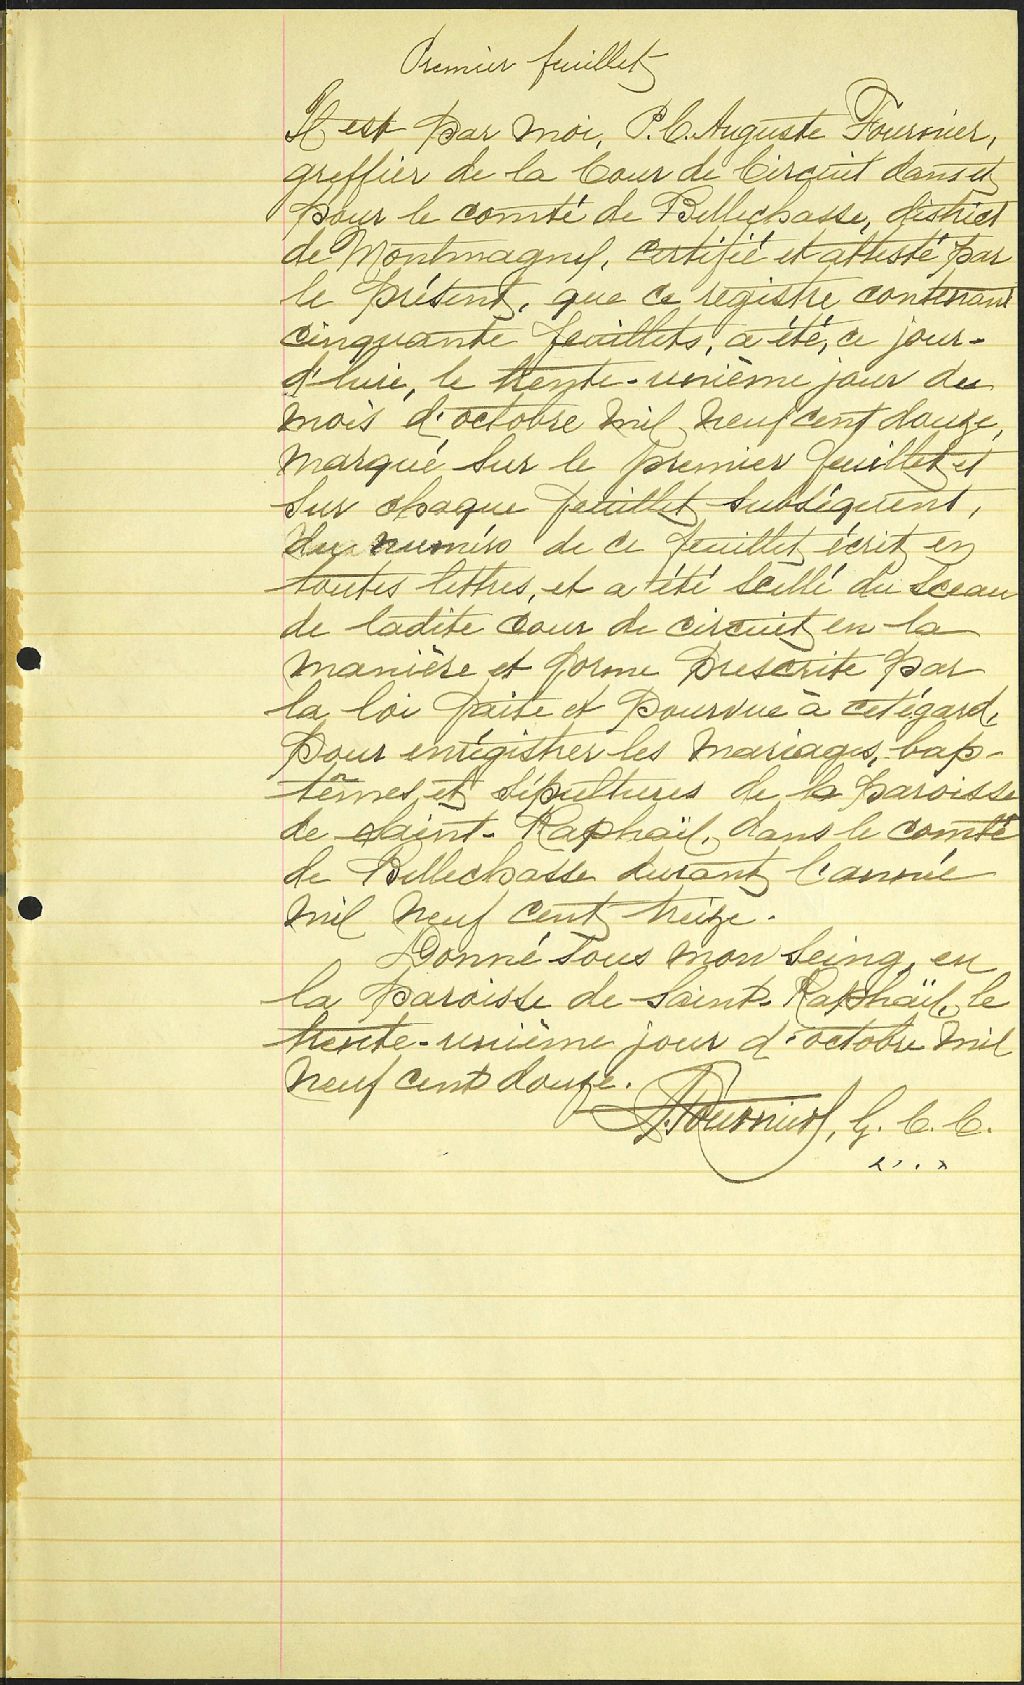 Premier feuillet
Il est par moi, P. C. Auguste Fournier,
greffier de la Cour de Circuit dans et
pour le comté de Bellechasse, district
de Montmagny, certifié et attesté par
le présent, que ce registre contenant
cinquante feuillets, a été, ce jour-
d'hui, le trente-unième jour du
mois d'octobre mil neuf cent douze,
marqué sur le premier feuillet et
sur chaque feuillet subséquent,
du numéro de ce feuillet écrit en
toutes lettres, et a été scellé du sceau
de ladite cour de circuit en la
manière et forme prescrite par
la loi faite et pourvue à cet égard,
pour enrégistrer les mariages, bap-
têmes et sépultures de la paroisse
de Saint-Raphaël, dans le comté
de Bellechasse durant l'année
mil neuf cent treize.
Donné sous mon seing, en
la paroisse de Saint-Raphaël, le
trente-unième jour d'octobre mil
neuf cent douze.
A. Fournier, G. C. C.